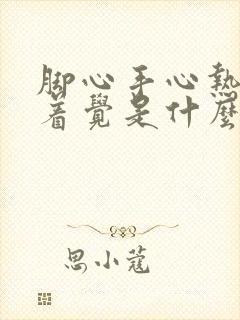 脚心手心熱
着覺是什麼
思小蔻